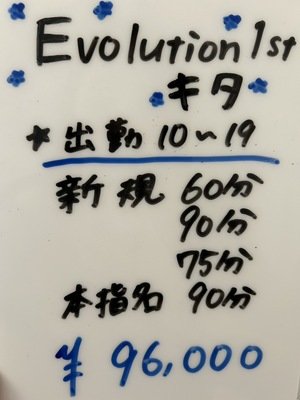 Evolution 1st
キタ
★出勤 10~19
新規 60分
90分
75分
本指名 90分
¥ 96,000